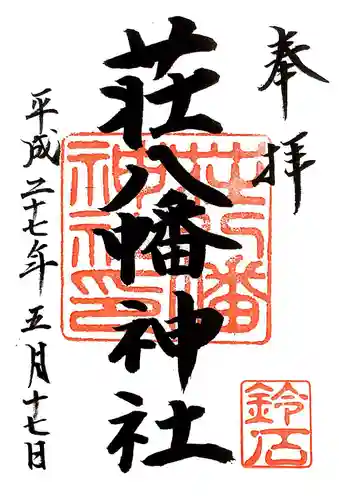 奉拝
荘八幡神社
荘八幡神社印
鈴石
平成二十七年五月十七日